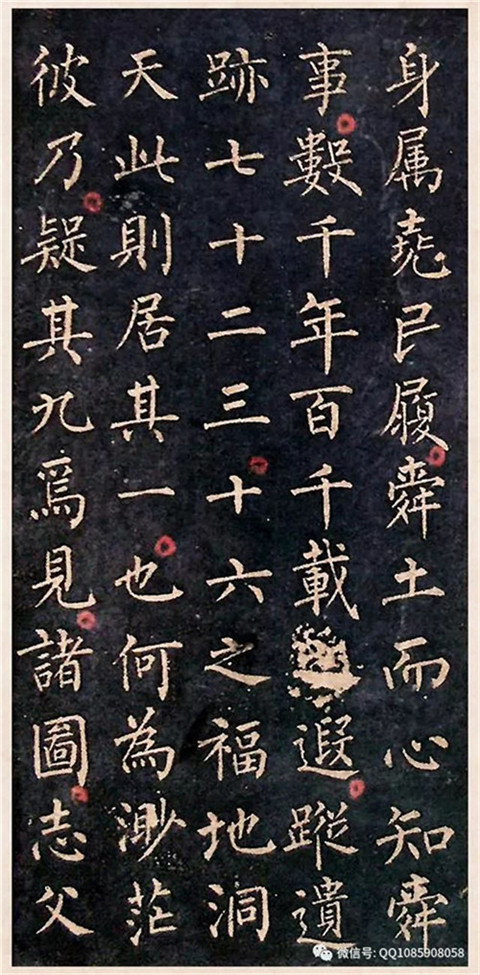 身属堯民履舜土而心知舜
事數千年百千載遐蹤遺
跡七十二三十六之福地洞
天此則居其一也何為渺茫
彼乃疑其九爲見諸圖志父
微信号: QQ1085908058